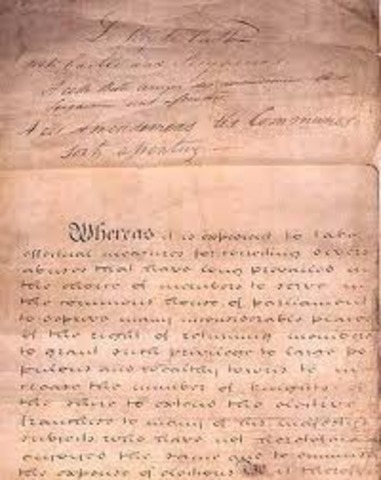 A ces amendemens les Communes
sont assentuz
Whereas it is expedient to take
effectual measures for correcting divers
abuses that have long prevailed in
the choice of members to serve in
the commons house of parliament
to deprive many inconsiderable places
of the right of returning members
to grant such privilege to large po
pulous and wealthy towns to in
crease the number of knights of
the shire to extend the elective
franchise to many of his majesty's
subjects who have not heretofore
enjoyed the same and to diminish
the expense of elections Be it therefore